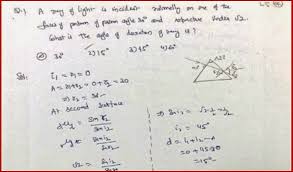 Q.1) A ray of light is incident normally on one of the
faces of prism of prism angle 30° and refractive index √2.
What is the angle of deviation of ray is?
1) 30° 2) 15° 3) 45° 4) 60°
Sol:
i₁ = r₁ = 0
A = r₁ + r₂ = 0 + r₂ = 30
⇒ r₂ = 30
At second surface
⇒ sin i₂ = √2 ×
i₂ = 45°
d = i₁ + i₂ - A
= 0 + 45 - 30
= 15°
√2 =